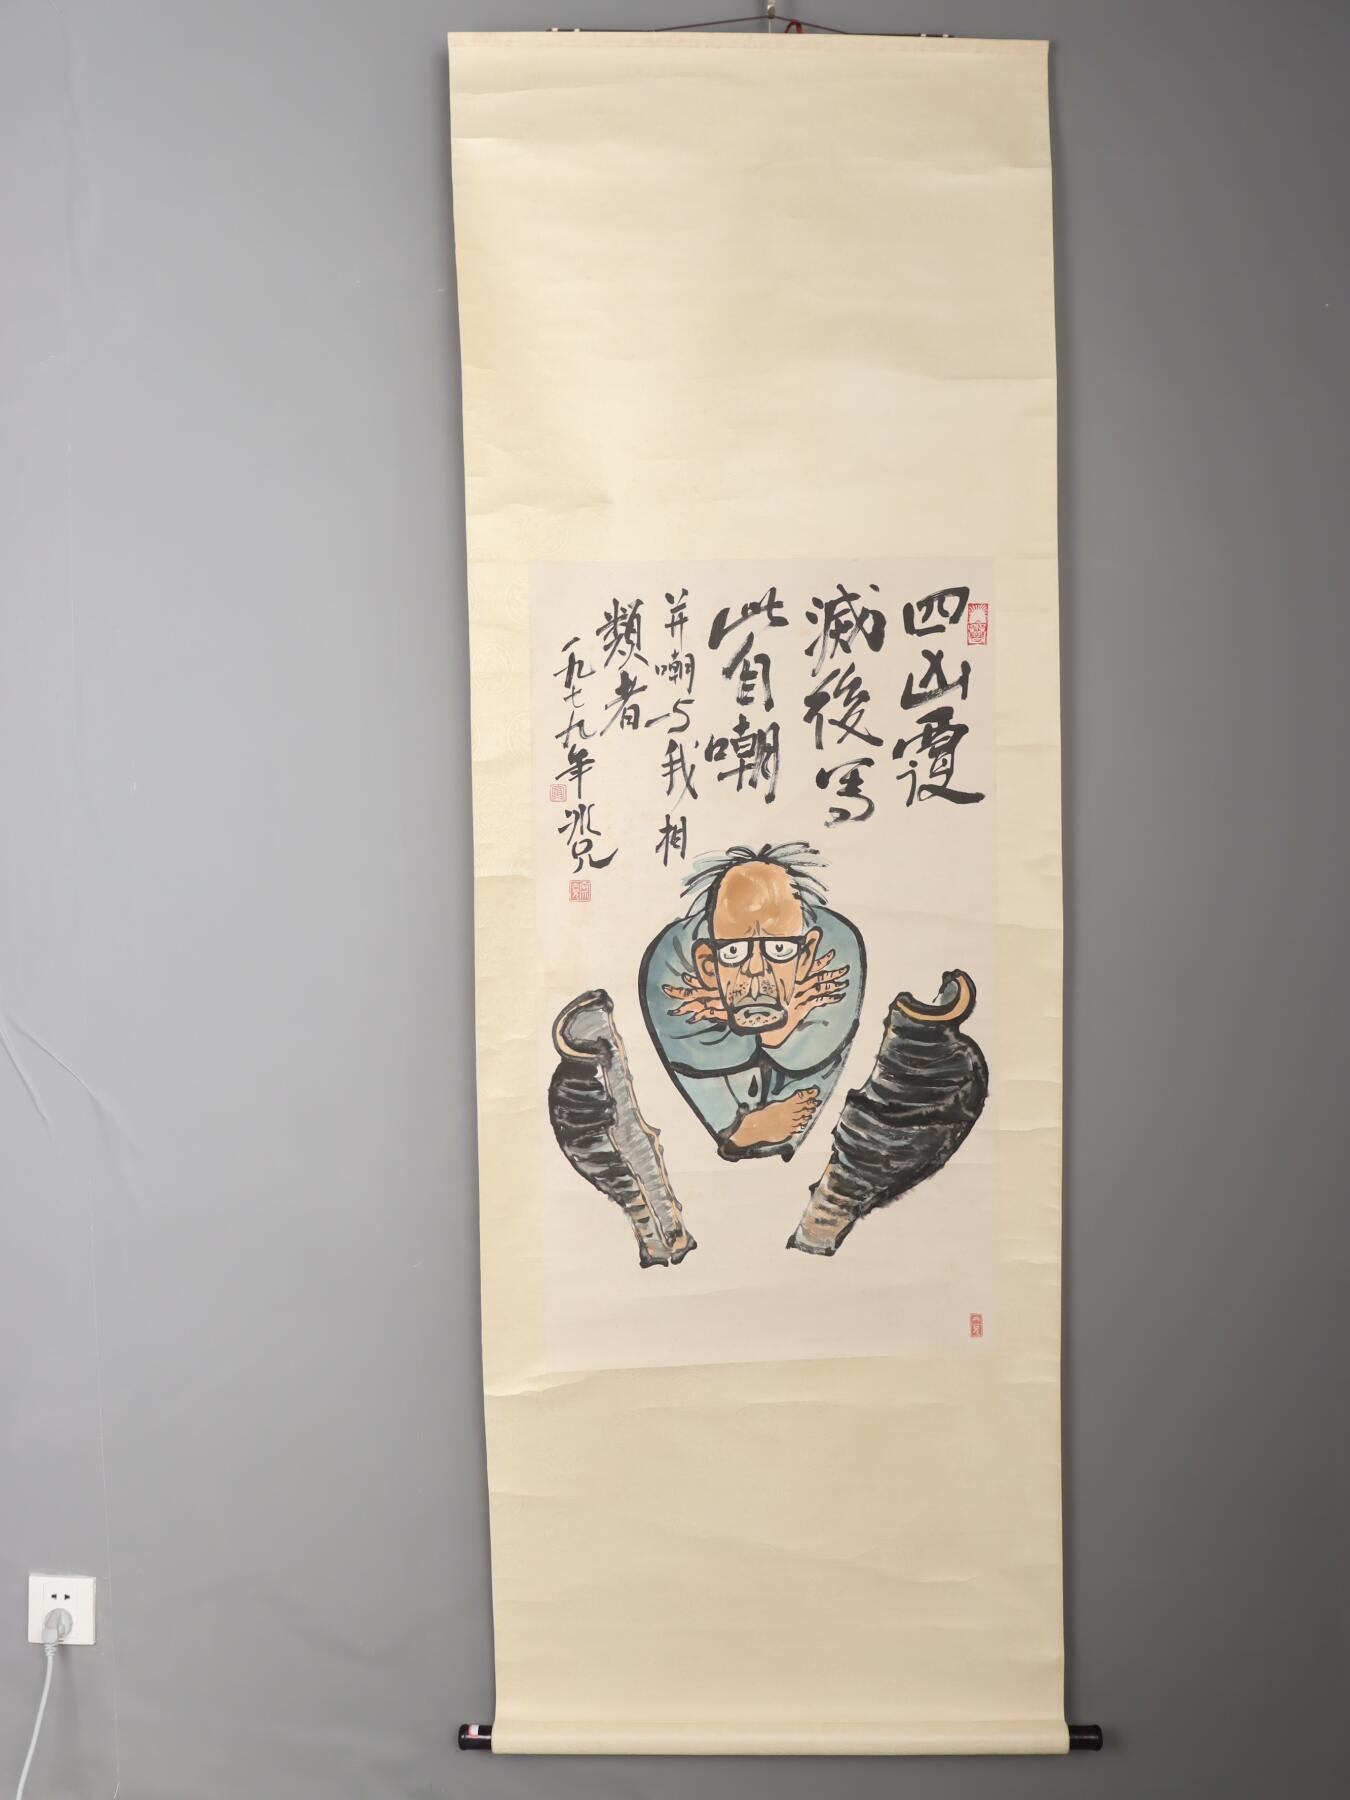 四凶覆
滅後写
此自嘲
并嘲与我相
類者
一九七九年
冰兄